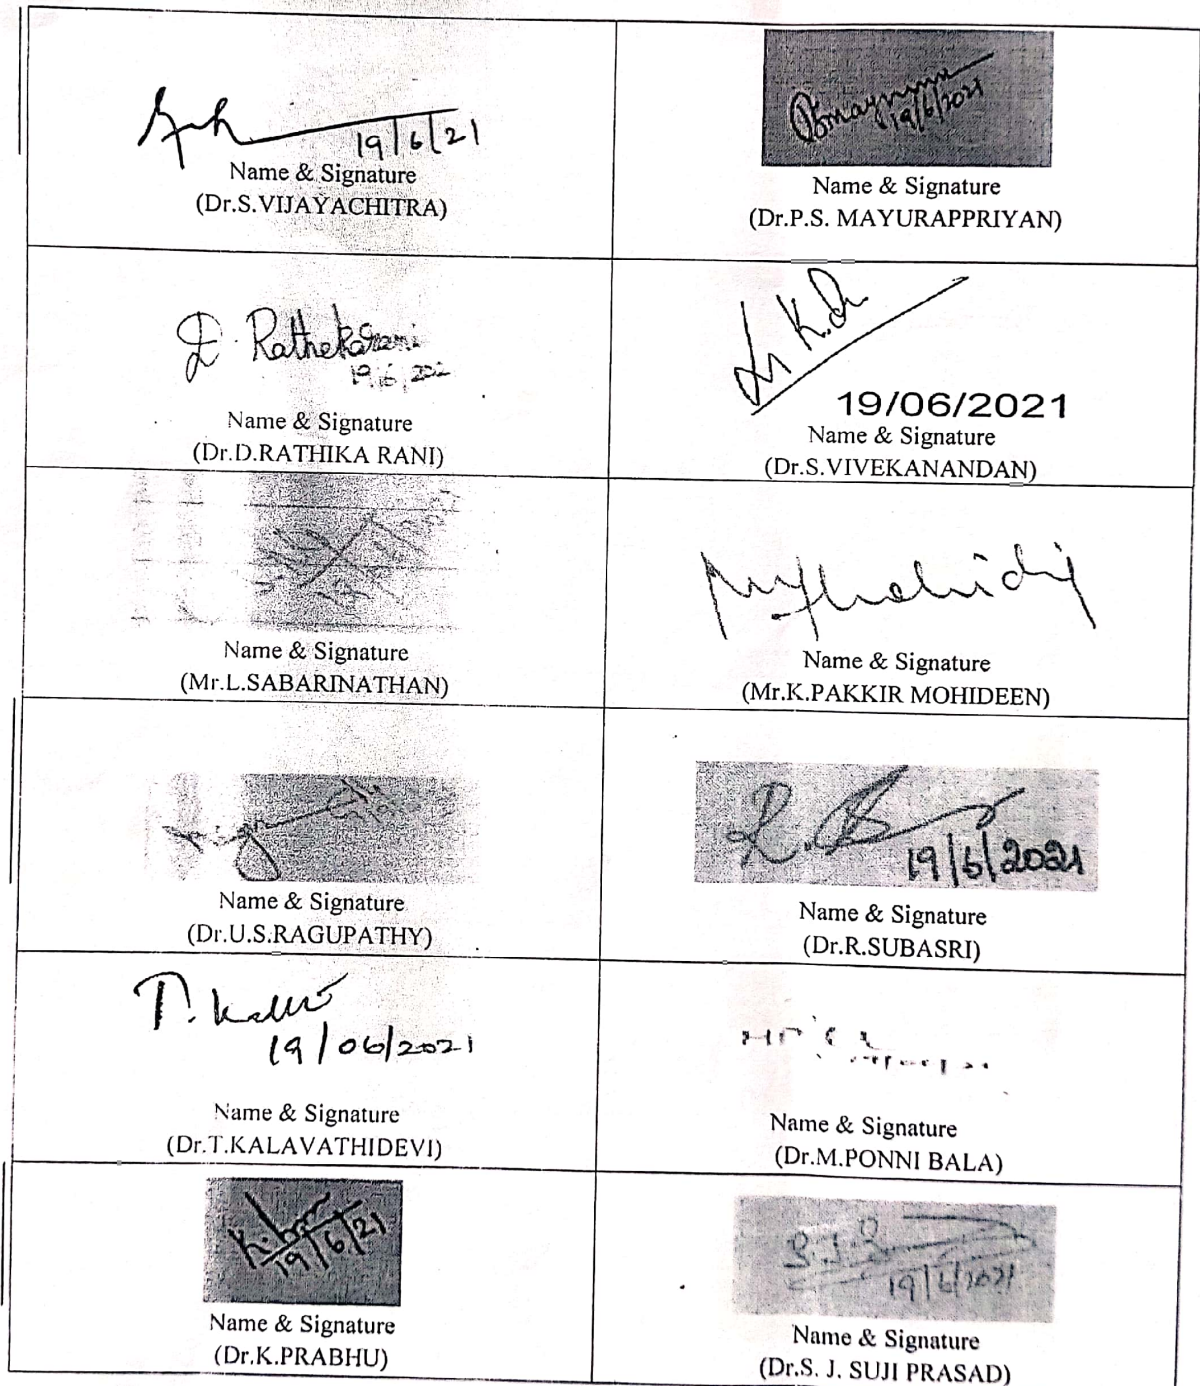 19/6/21
Name & Signature
(Dr.S.VIJAYACHITRA)
19/6/2021
Name & Signature
(Dr.P.S. MAYURAPPRIYAN)
D. Rathikarani
Name & Signature
(Dr.D.RATHIKA RANI)
19/06/2021
Name & Signature
(Dr.S.VIVEKANANDAN)
Name & Signature
(Mr.L.SABARINATHAN)
Name & Signature
(Mr.K.PAKKIR MOHIDEEN)
Name & Signature
(Dr.U.S.RAGUPATHY)
R.
19/6/2021
Name & Signature
(Dr.R.SUBASRI)
T.
19/06/2021
Name & Signature
(Dr.T.KALAVATHIDEVI)
Name & Signature
(Dr.M.PONNI BALA)
19/6/21
Name & Signature
(Dr.K.PRABHU)
19/6/2021
Name & Signature
(Dr.S. J. SUJI PRASAD)